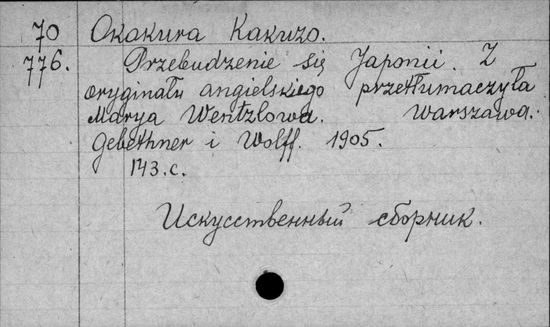 70 Okakura Kakuzo.
776. Przebudzenie się Japonii. Z
oryginału angielskiego przetłumaczyła
Marya Wentzlowa. Warszawa.
Gebethner i Wolff. 1905.
143.c.
Искусственный сборник.